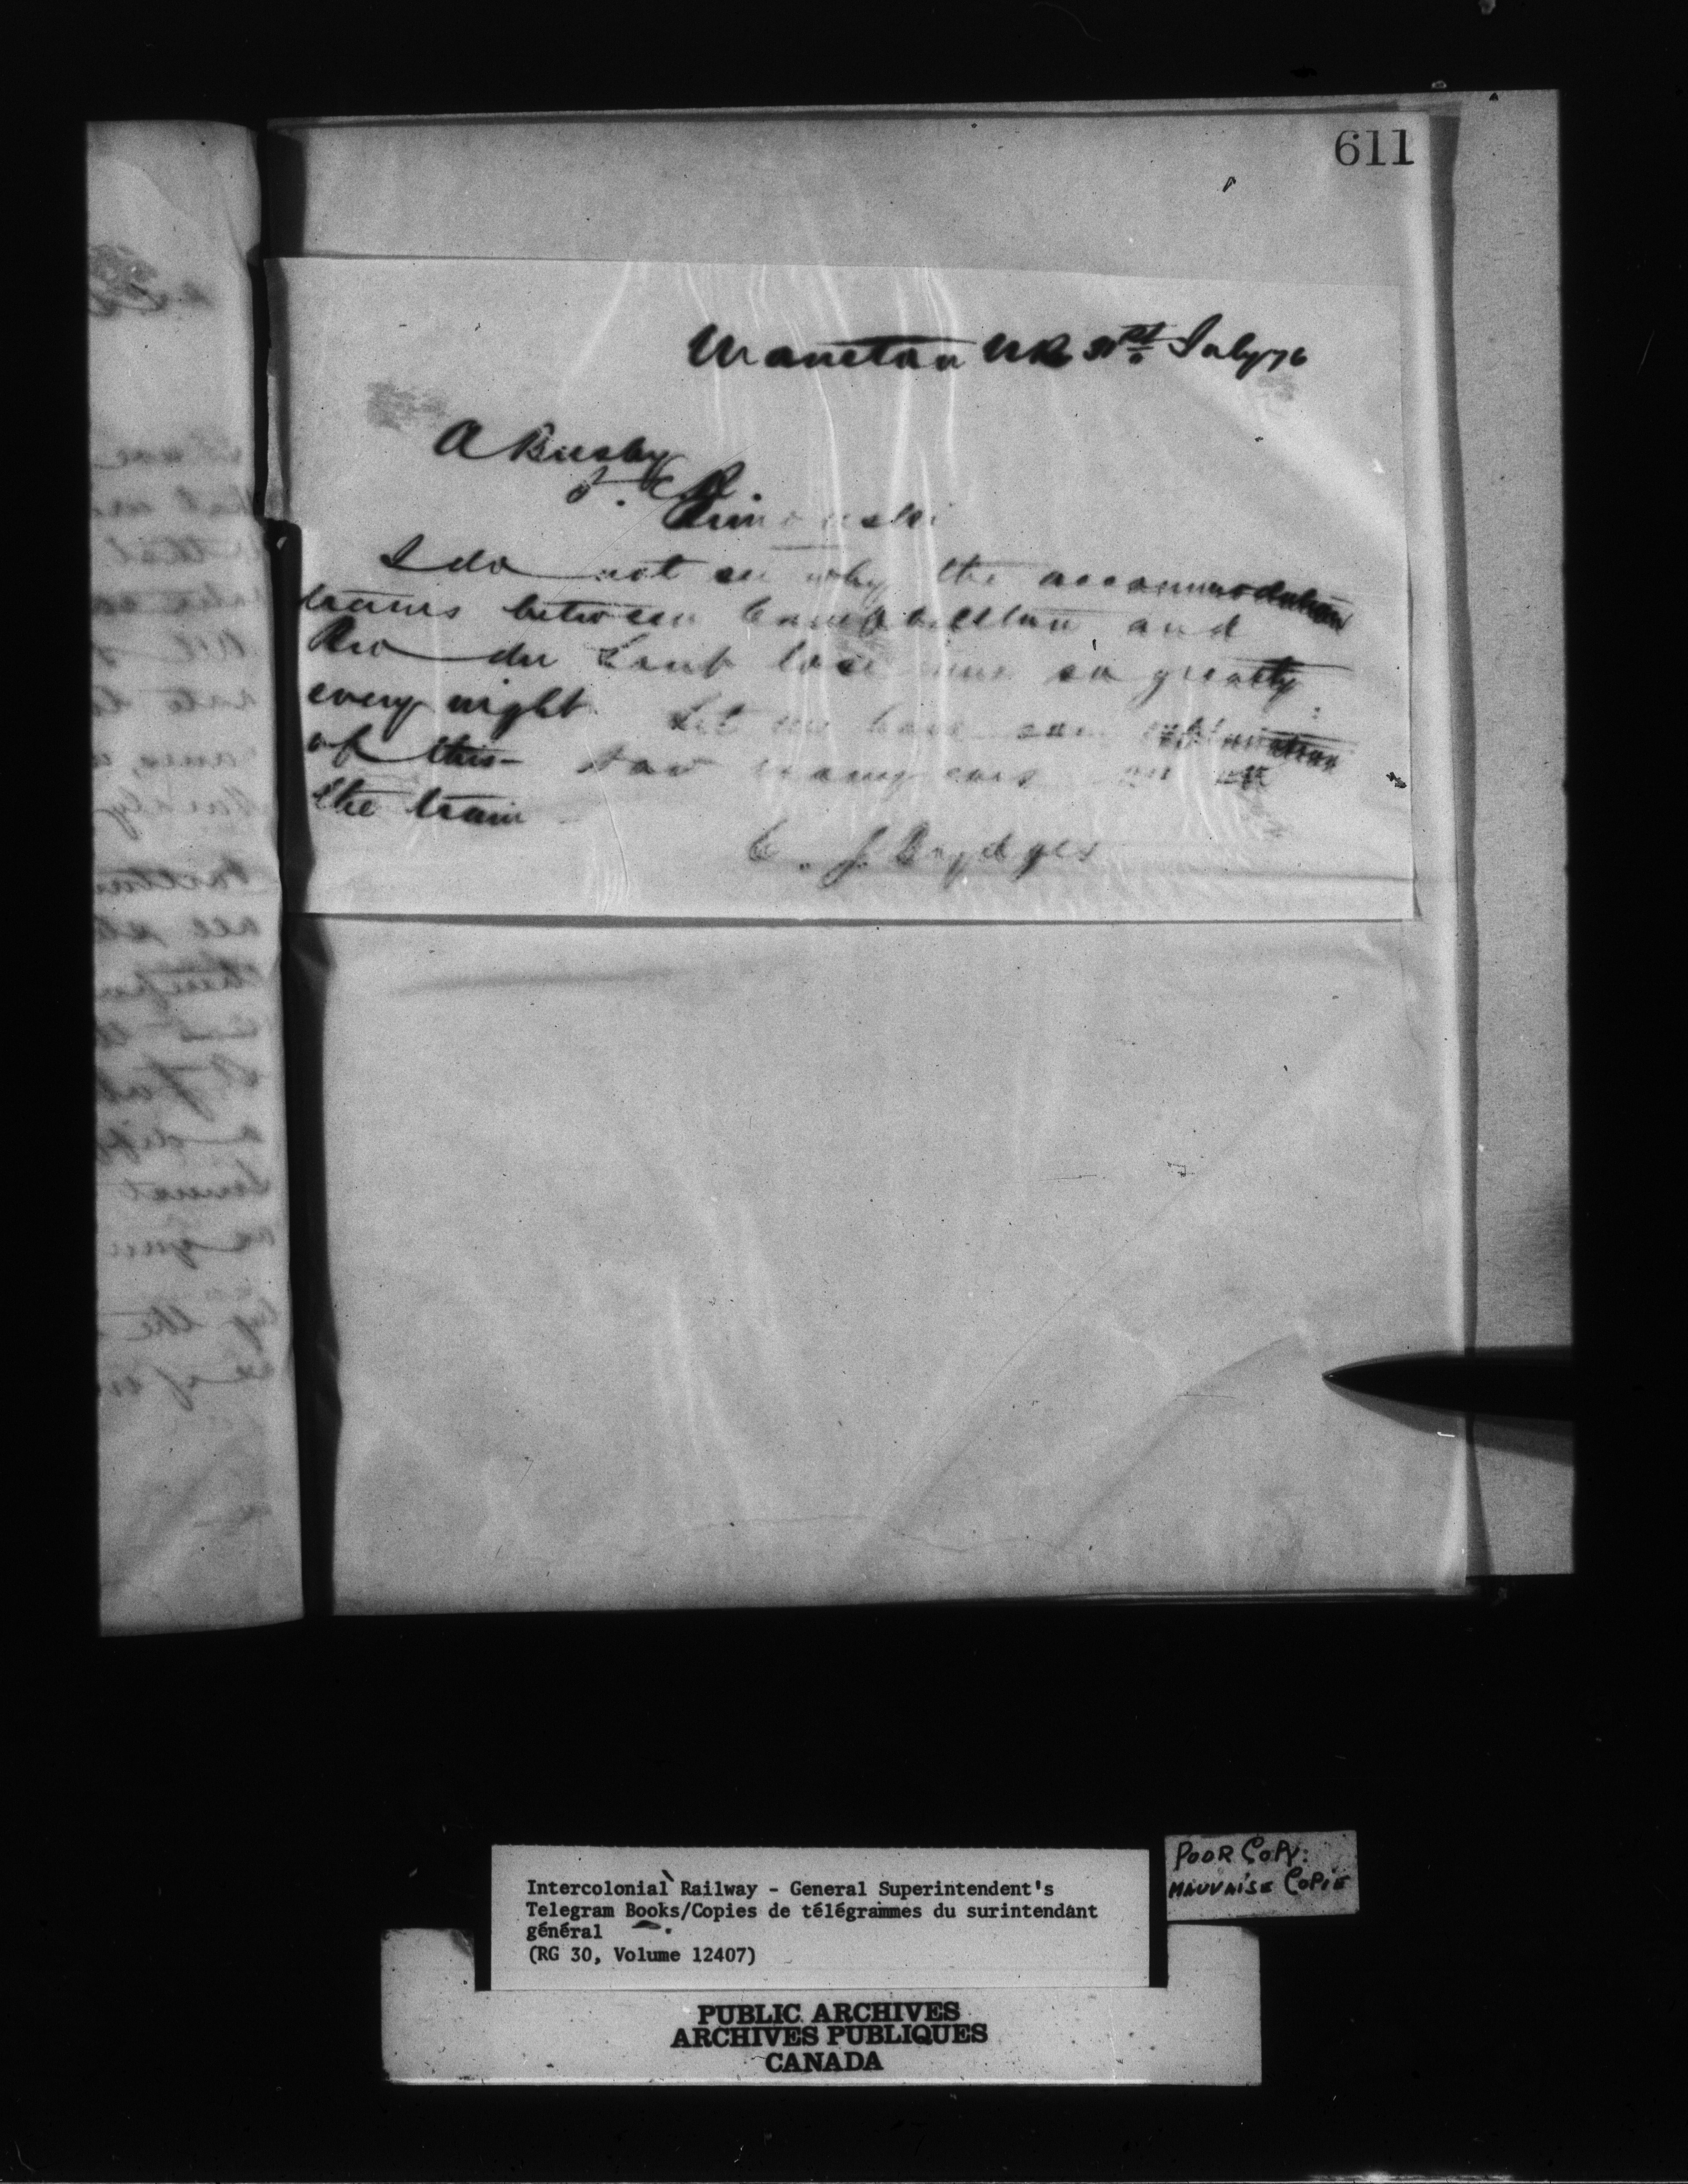 611
Moncton NB 31st July 76
A Busby
I.C.R.
Rimouski
I do not see why the accommodation
trains between Campbellton and
Riv du Loup lose time so greatly
every night. Let me have some explanation
of this - How many cars are on
the train
C. J. Brydges
Intercolonial Railway - General Superintendent's
Telegram Books/Copies de télégrammes du surintendant
général
(RG 30, Volume 12407)
POOR COPY:
MAUVAISE COPIE
PUBLIC ARCHIVES
ARCHIVES PUBLIQUES
CANADA